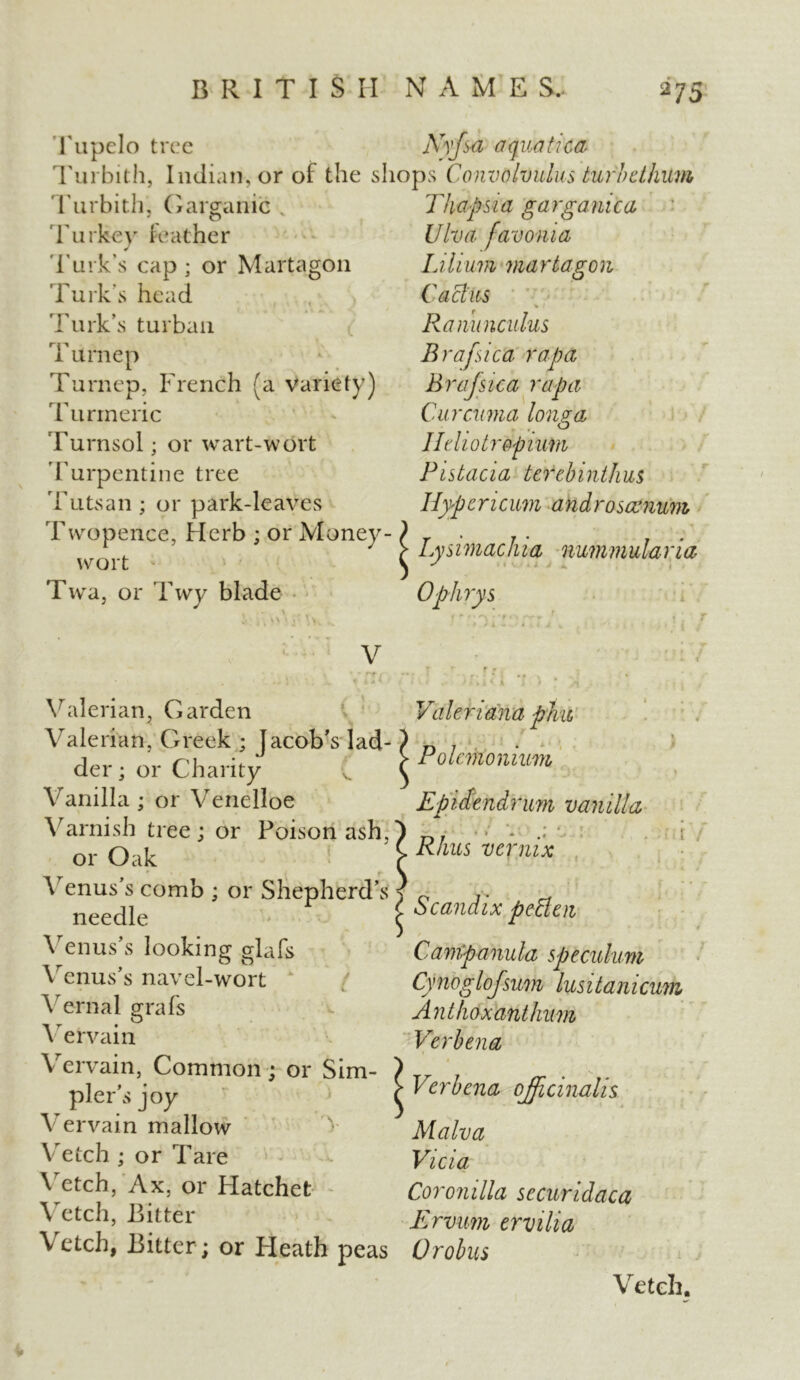 BRITISH NAMES. 275
Tupelo tree Nyſsa aquatica
Turbith, Indian, or of the shops Convolvulus turbethum
Turbith, Garganic Thapsia garganica
Turkey feather Ulva favonia
Turk's cap ; or Martagon Lilium martagon
Turk's head Cactus
Turk's turban Ranunculus
Turnep Braſsica rapa
Turnep, French (a variety) Braſsica rapa
Turmeric Curcuma longa
Turnsol ; or wart-wort Heliotropium
Turpentine tree Pistacia terebinthus
Tutsan ; or park-leaves Hypericum androsæmum
Twopence, Herb ; or Money-
wort } Lysimachia nummularia
Twa, or Twy blade Ophrys
V
Valerian, Garden Valeriana phu
Valerian, Greek ; Jacob's lad-
der ; or Charity } Polemonium
Vanilla ; or Venelloe Epidendrum vanilla
Varnish tree ; or Poison ash,
or Oak } Rhus vernix
Venus's comb ; or Shepherd's
needle } Scandix pecten
Venus's looking glaſs Campanula speculum
Venus's navel-wort Cynogloſsum lusitanicum
Vernal graſs Anthoxanthum
Vervain Verbena
Vervain, Common ; or Sim-
pler's joy } Verbena officinalis
Vervain mallow Malva
Vetch ; or Tare Vicia
Vetch, Ax, or Hatchet Coronilla securidaca
Vetch, Bitter Ervum ervilia
Vetch, Bitter ; or Heath peas Orobus
Vetch.